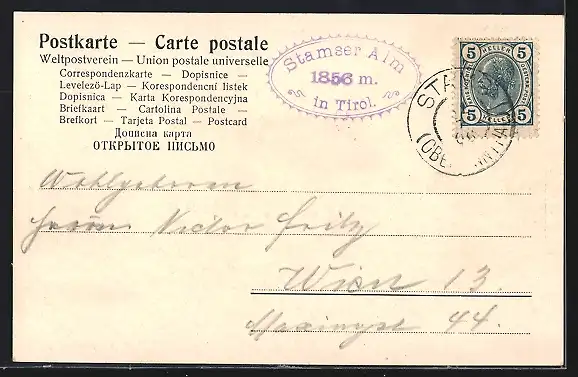 Postkarte — Carte postale
Weltpostverein — Union postale universelle
Correspondenzkarte — Dopisnice —
Levelező-Lap — Korespondencní listek
Dopisnica — Karta Korespondencyjna
Briefkaart — Cartolina Postale —
Brefkort — Tarjeta Postal — Postcard
Дописна карта
ОТКРЫТОЕ ПИСЬМО
Stamser Alm
1856 m.
in Tirol.
5 HELLER 5
5 HELLER 5
STA
(OBE
Wohlgeboren
Herrn Victor Fritz
Wien 13.
44.